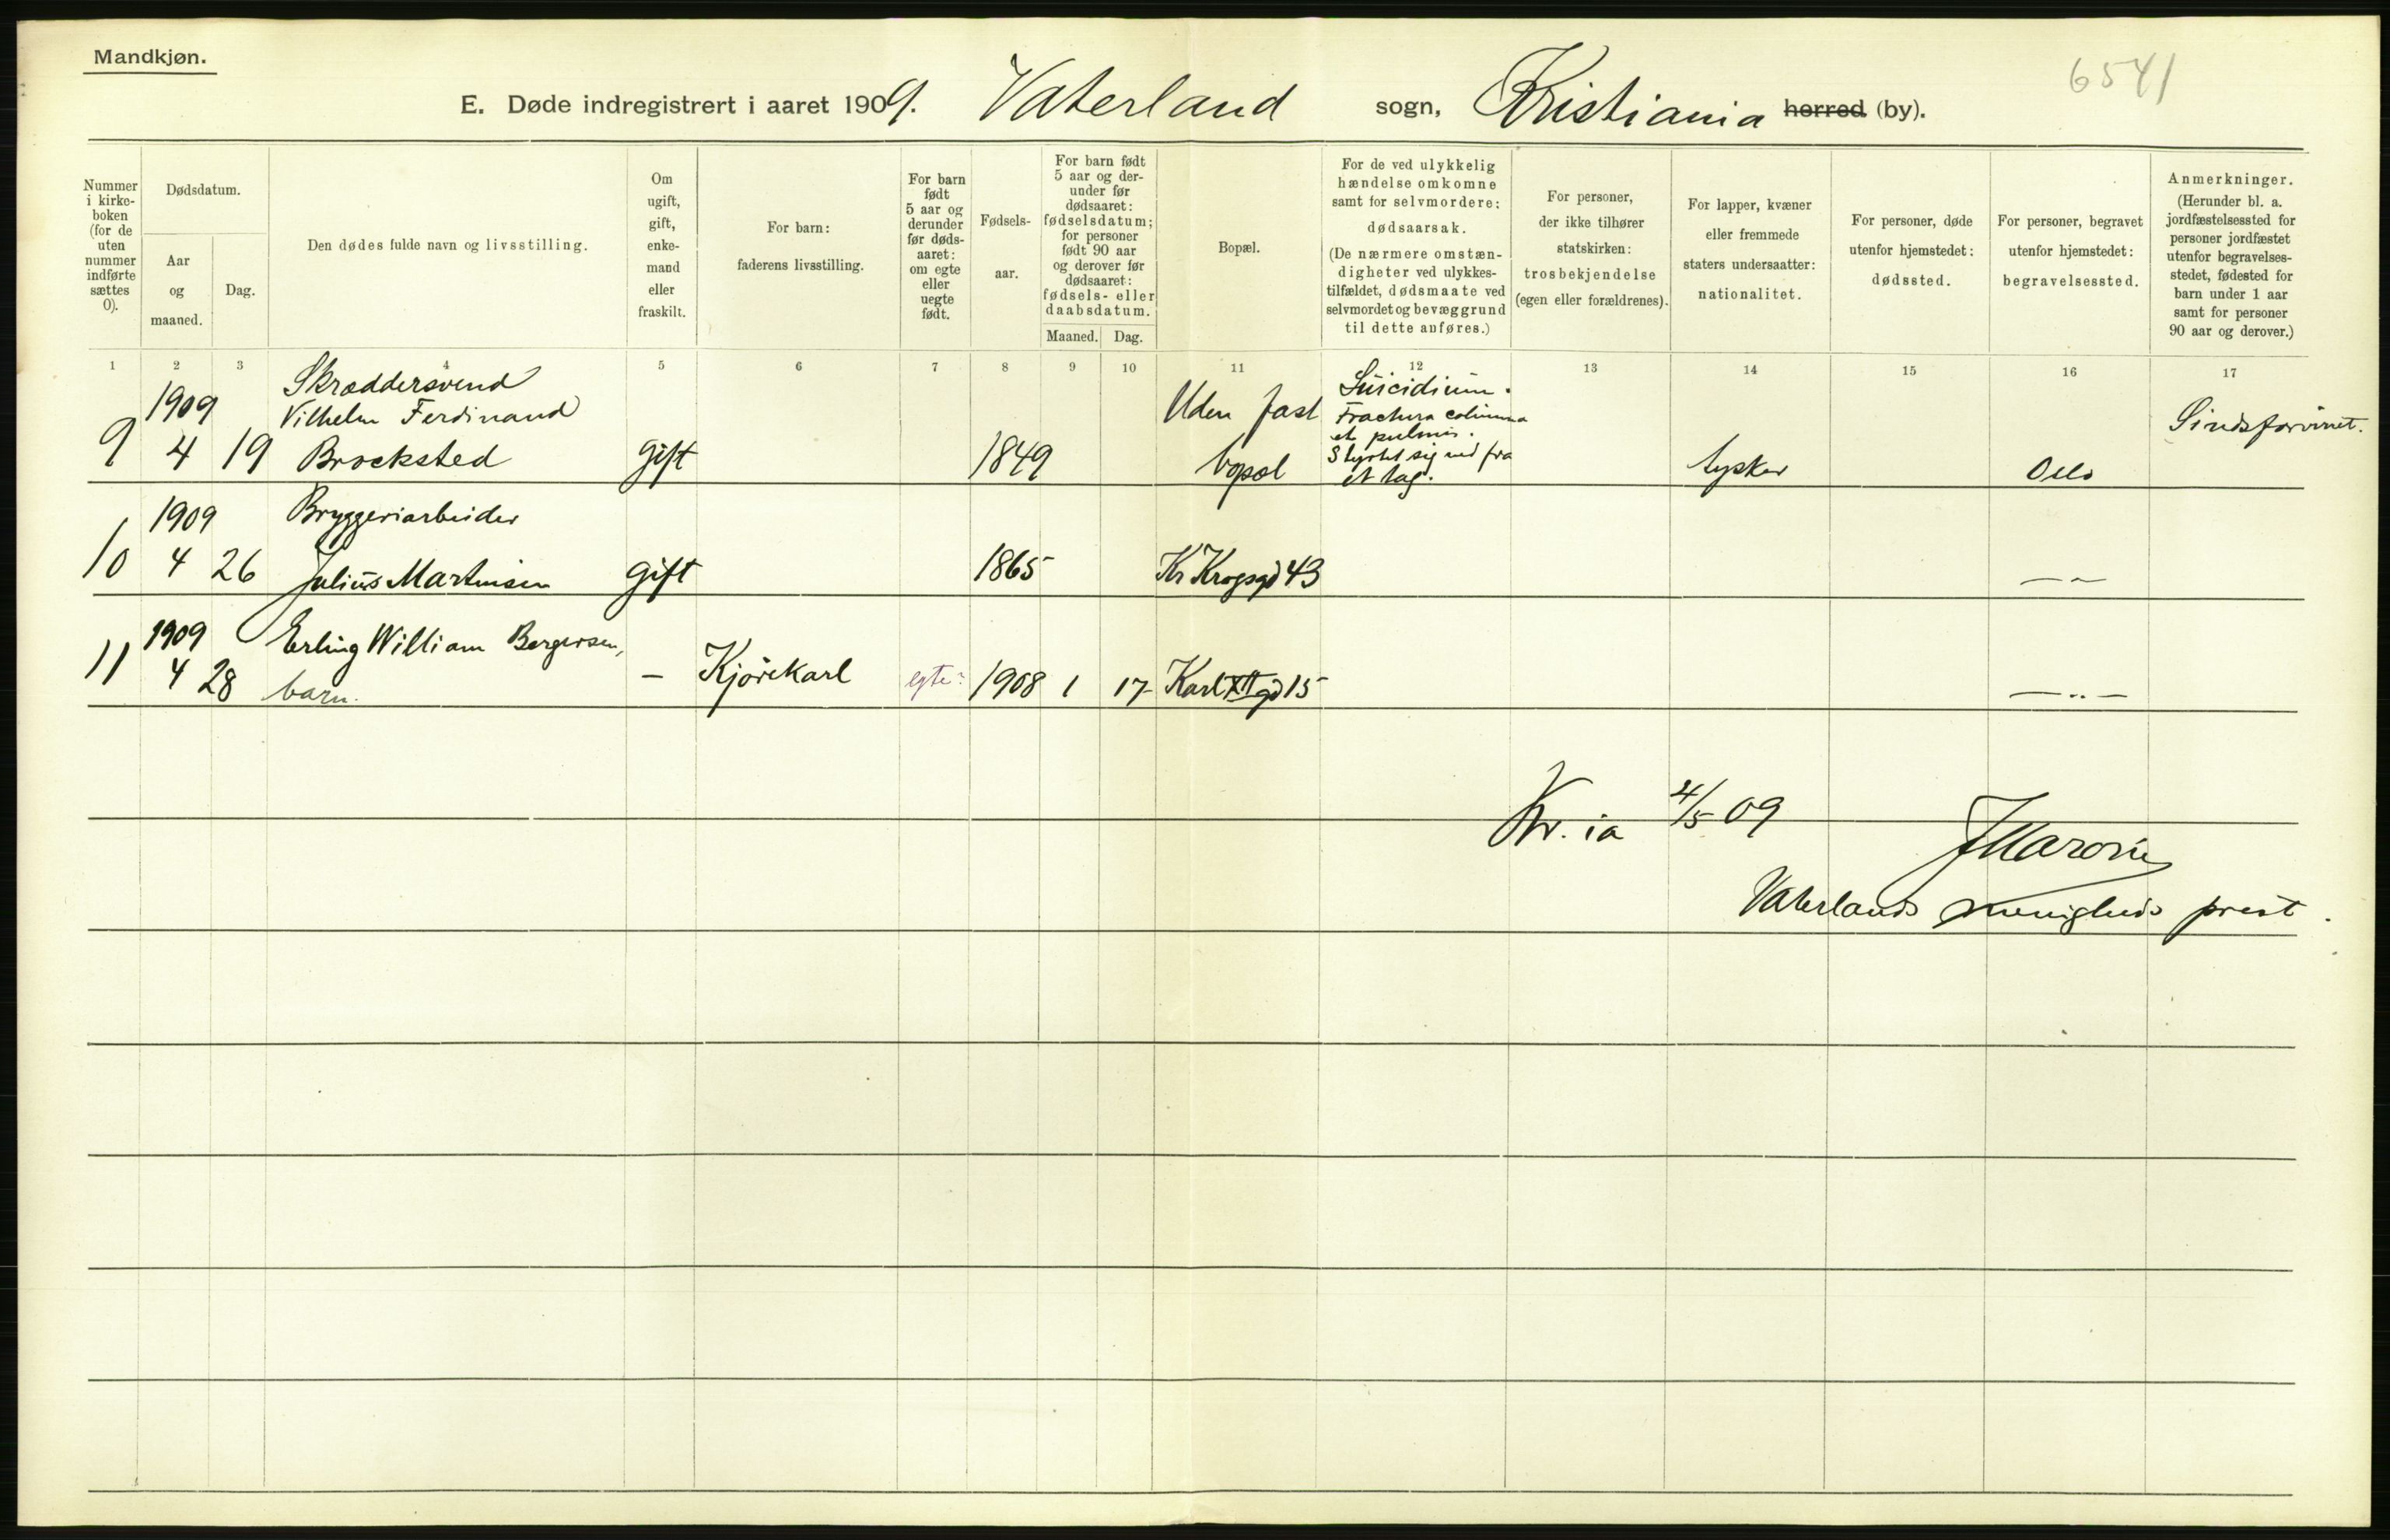 Mandkjøn.
6541
E. Døde indregistrert i aaret 1909. Vaterland sogn, Kristiania herred (by).
Nummer i kirke-boken (for de uten nummer indførte sættes 0).
Dødsdatum.
Aar og maaned.
Dag.
Den dødes fulde navn og livsstilling.
Om ugift, gift, enke-mand eller fraskilt.
For barn: faderens livsstilling.
For barn født 5 aar og derunder før døds-aaret: om egte eller uegte født.
Fødsels-aar.
For barn født 5 aar og der-under før dødsaaret: fødselsdatum; for personer født 90 aar og derover før dødsaaret: fødsels- eller daabsdatum.
Maaned. Dag.
Bopæl.
For de ved ulykkelig hændelse omkomne samt for selvmordere: dødsaarsak. (De nærmere omstæn-digheter ved ulykkes-tilfældet, dødsmaate ved selvmordet og bevæggrund til dette anføres.)
For personer, der ikke tilhører statskirken: trosbekjendelse (egen eller forældrenes).
For lapper, kvæner eller fremmede staters undersaatter: nationalitet.
For personer, døde utenfor hjemstedet: dødssted.
For personer, begravet utenfor hjemstedet: begravelsessted.
Anmerkninger. (Herunder bl. a. jordfæstelsessted for personer jordfæstet utenfor begravelses-stedet, fødested for barn under 1 aar samt for personer 90 aar og derover.)
1 2 3 4 5 6 7 8 9 10 11 12 13 14 15 16 17
Skræddersvend Suicidium.
1909 Vilhelm Ferdinand Uden fast Fractura columna Sindsforvirret.
et pulmis.
9 4 19 Brocksted gift 1849 bopæl Styrtet sig ned fra tysker Oslo
et tag.
1909 Bryggeriarbeider
10 4 26 Julius Martinsen gift 1865 Kr Krogsgd 43 — " —
1909 Erling William Bergersen,
11 4 28 barn. — Kjørekarl egte 1908 1 17 Karl XII gd 15 — " —
Kr.ia 4/5 09
Vaterlands menigheds prest.